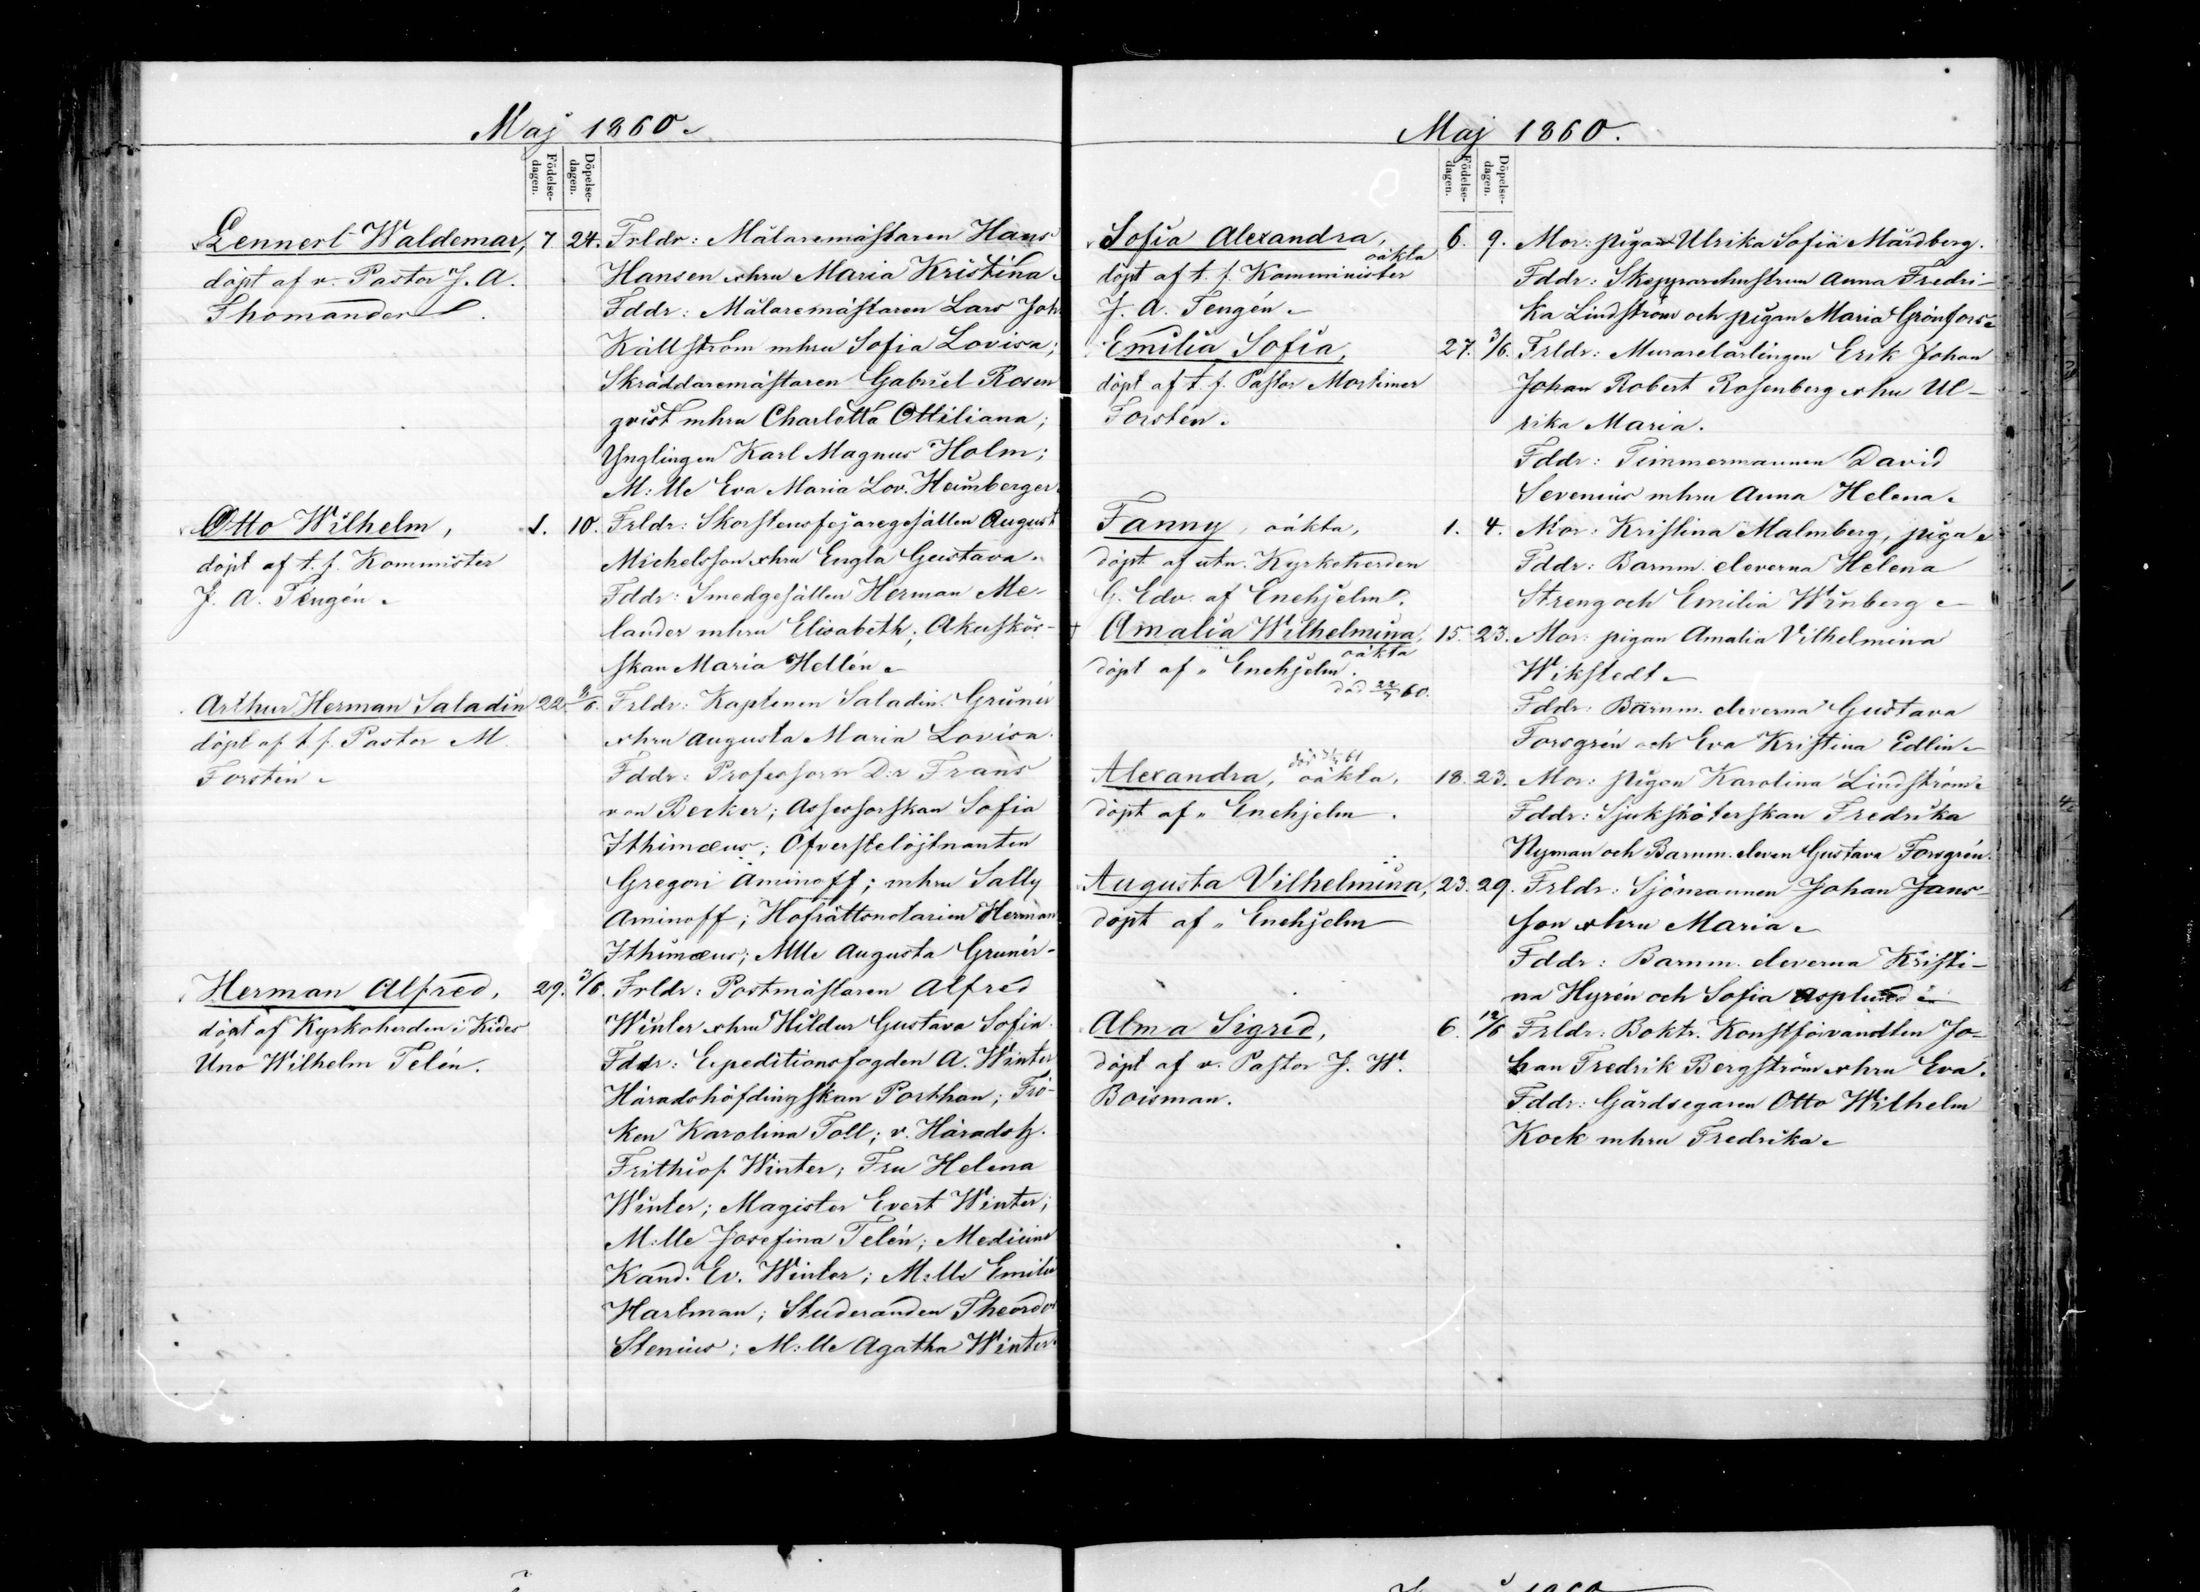 Maj 1860.
Födelse-
dagen.
Döpelse-
dagen.
Lennert Waldemar,
döpt af v. Pastor J. A.
Thomander.
7 24. Frldr: Målaremästaren Hans
Hansen o hru Maria Kristina
Fddr: Målaremästaren Lars Joh
Källström mhru Sofia Lovisa;
Skräddaremästaren Gabriel Rosen
qvist mhru Charlotta Ottiliana;
Ynglingen Karl Magnus Holm;
M:lle Eva Maria Lov. Heimberger.
Otto Wilhelm,
döpt af t. f. Kommister
J. A. Tengén.
1. 10. Frldr: Skorstensfejaregesällen August
Michelsson o hru Engla Gustava.
Fddr: Smedgesällen Herman Me-
lander mhru Elisabeth; Akuskör-
skan Maria Hellén.
Arthur Herman Saladin
döpt af t. f. Pastor M.
Forstén.
22. 3/6. Frldr: Kaptenen Saladin Grünér
o hru Augusta Maria Lovisa.
Fddr: Professorn D:r Frans
von Becker; Assessorskan Sofia
Ithimæus; Öfverstelöjtnanten
Gregori Aminoff; mhru Sally
Aminoff; Hofrättsnotarien Herman
Ithimæus; Mlle Augusta Grunér.
Herman Alfred,
döpt af Kyrkoherden i Kides
Uno Wilhelm Telén.
29. 3/6. Frldr: Postmästaren Alfred
Winter o hru Hildur Gustava Sofia.
Fddr: Expeditionsfogden A. Winter
Häradshöfdingskan Porthan; Frö-
ken Karolina Toll; v. Häradsh.
Frithiof Winter; Fru Helena
Winter; Magister Evert Winter;
M:lle Josefina Telén; Medicine
Kand. Ev. Winter; M:lle Emilie
Hartman; Studeranden Theordor
Stenius; M:lle Agatha Winter.
Maj 1860.
Födelse-
dagen.
Döpelse-
dagen.
Sofia Alexandra,
oäkta
döpt af t. f. Komminister
J. A. Tengén.
6. 9. Mor: pigan Ulrika Sofia Mårdberg.
Fddr: Skepparehustrun Anna Fredri-
ka Lindström och pigan Maria Grönfors.
Emilia Sofia,
döpt af t. f. Pastor Mortimer
Forstén.
27. 3/6. Frldr: Murarelärlingen Erik Johan
Johan Robert Rosenberg o hru Ul-
rika Maria.
Fddr: Timmermannen David
Sevenius mhru Anna Helena.
Fanny, oäkta,
döpt af utn. Kyrkoherden
G. Edv. af Enehjelm.
1. 4. Mor: Kristina Malmberg, piga.
Fddr: Barnm. eleverna Helena
Streng och Emilia Winberg.
† Amalia Wilhelmina,
oäkta
döpt af " Enehjelm.
död 22/7 60.
15. 23. Mor: pigan Amalia Vilhelmina
Wikstedt.
Fddr: Barnm. eleverna Gustava
Forsgrén och Eva Kristina Edlin.
Alexandra, oäkta,
döpt af " Enehjelm.
18. 23. Mor: pigan Karolina Lindström.
Fddr: Sjuksköterskan Fredrika
Nyman och Barnm. eleven Gustava Forsgrén.
Augusta Vilhelmina,
döpt af " Enehjelm
23. 29. Frldr: Sjömannen Johan Jans-
son o hru Maria.
Fddr: Barnm. eleverna Kristi-
na Hyrén och Sofia Asplund.
Alma Sigrid,
döpt af v. Pastor J. W.
Boisman.
6. 12/6 Frldr: Boktr. Konstförvandten Jo-
han Fredrik Bergström o hru Eva.
Fddr: Gårdsegaren Otto Wilhelm
Kock mhru Fredrika.